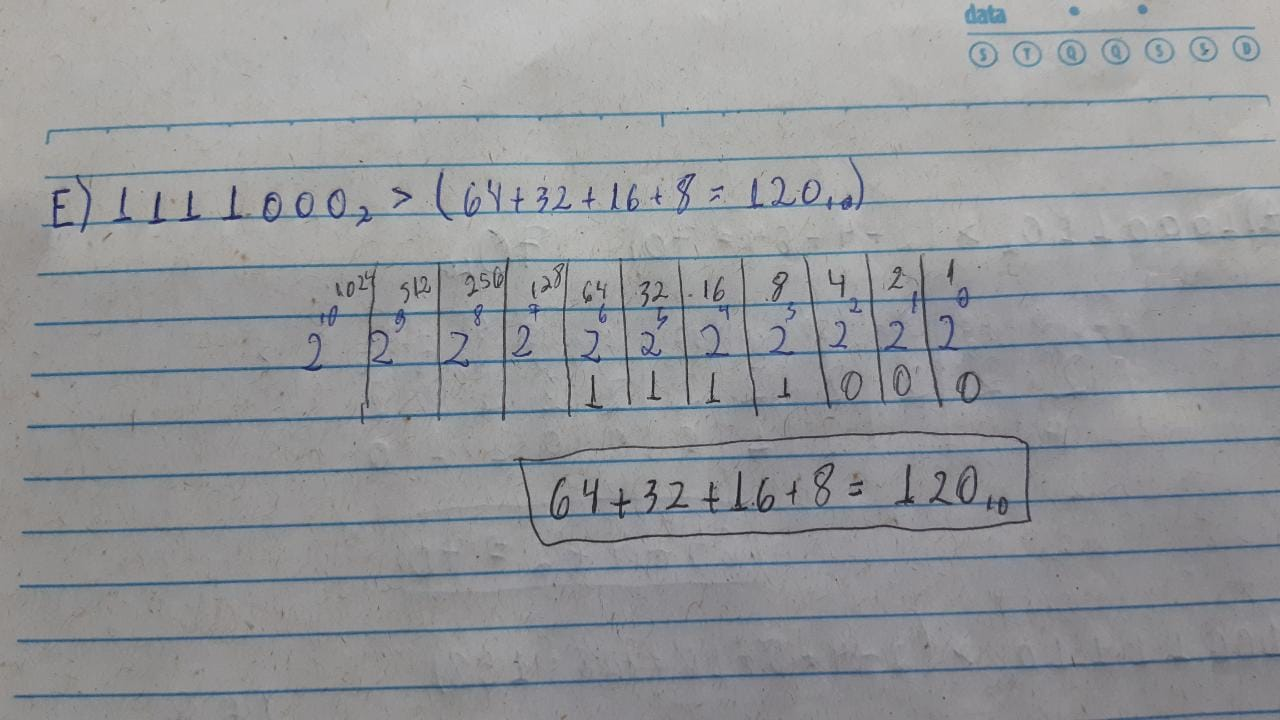 data
S T Q Q S S D
E) 1111000₂ > (64+32+16+8 = 120₁₀)
1024 512 256 128 64 32 16 8 4 2 1
2¹⁰ 2⁹ 2⁸ 2⁷ 2⁶ 2⁵ 2⁴ 2³ 2² 2¹ 2⁰
1 1 1 1 0 0 0
64+32+16+8= 120₁₀